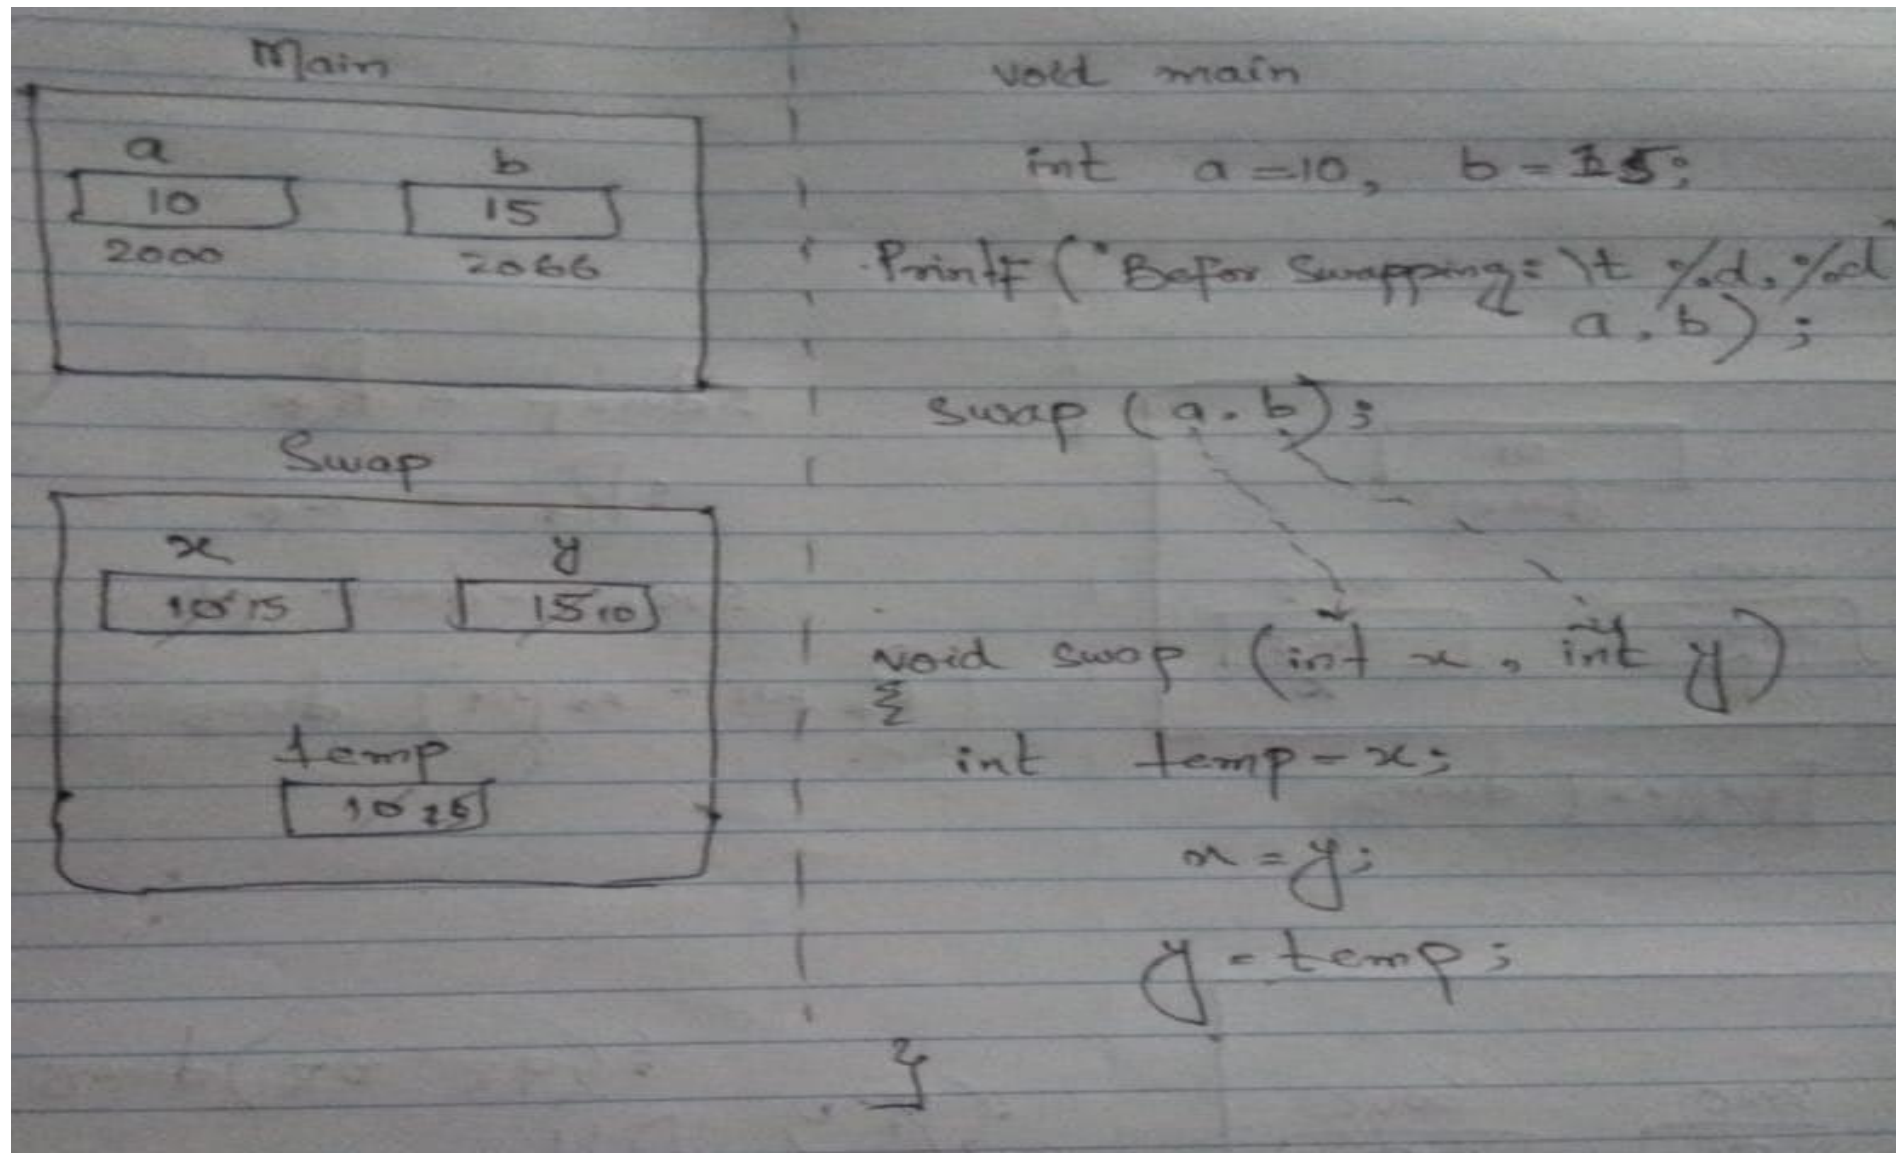 Main
a b
10 15
2000 2066
Swap
x y
10 15 15 10
temp
10
void main
int a=10, b=15;
Printf ("Befor Swapping: \t %d, %d"
a, b);
swap (a, b);
void swap (int x, int y)
{
int temp = x;
x = y;
y = temp;
}